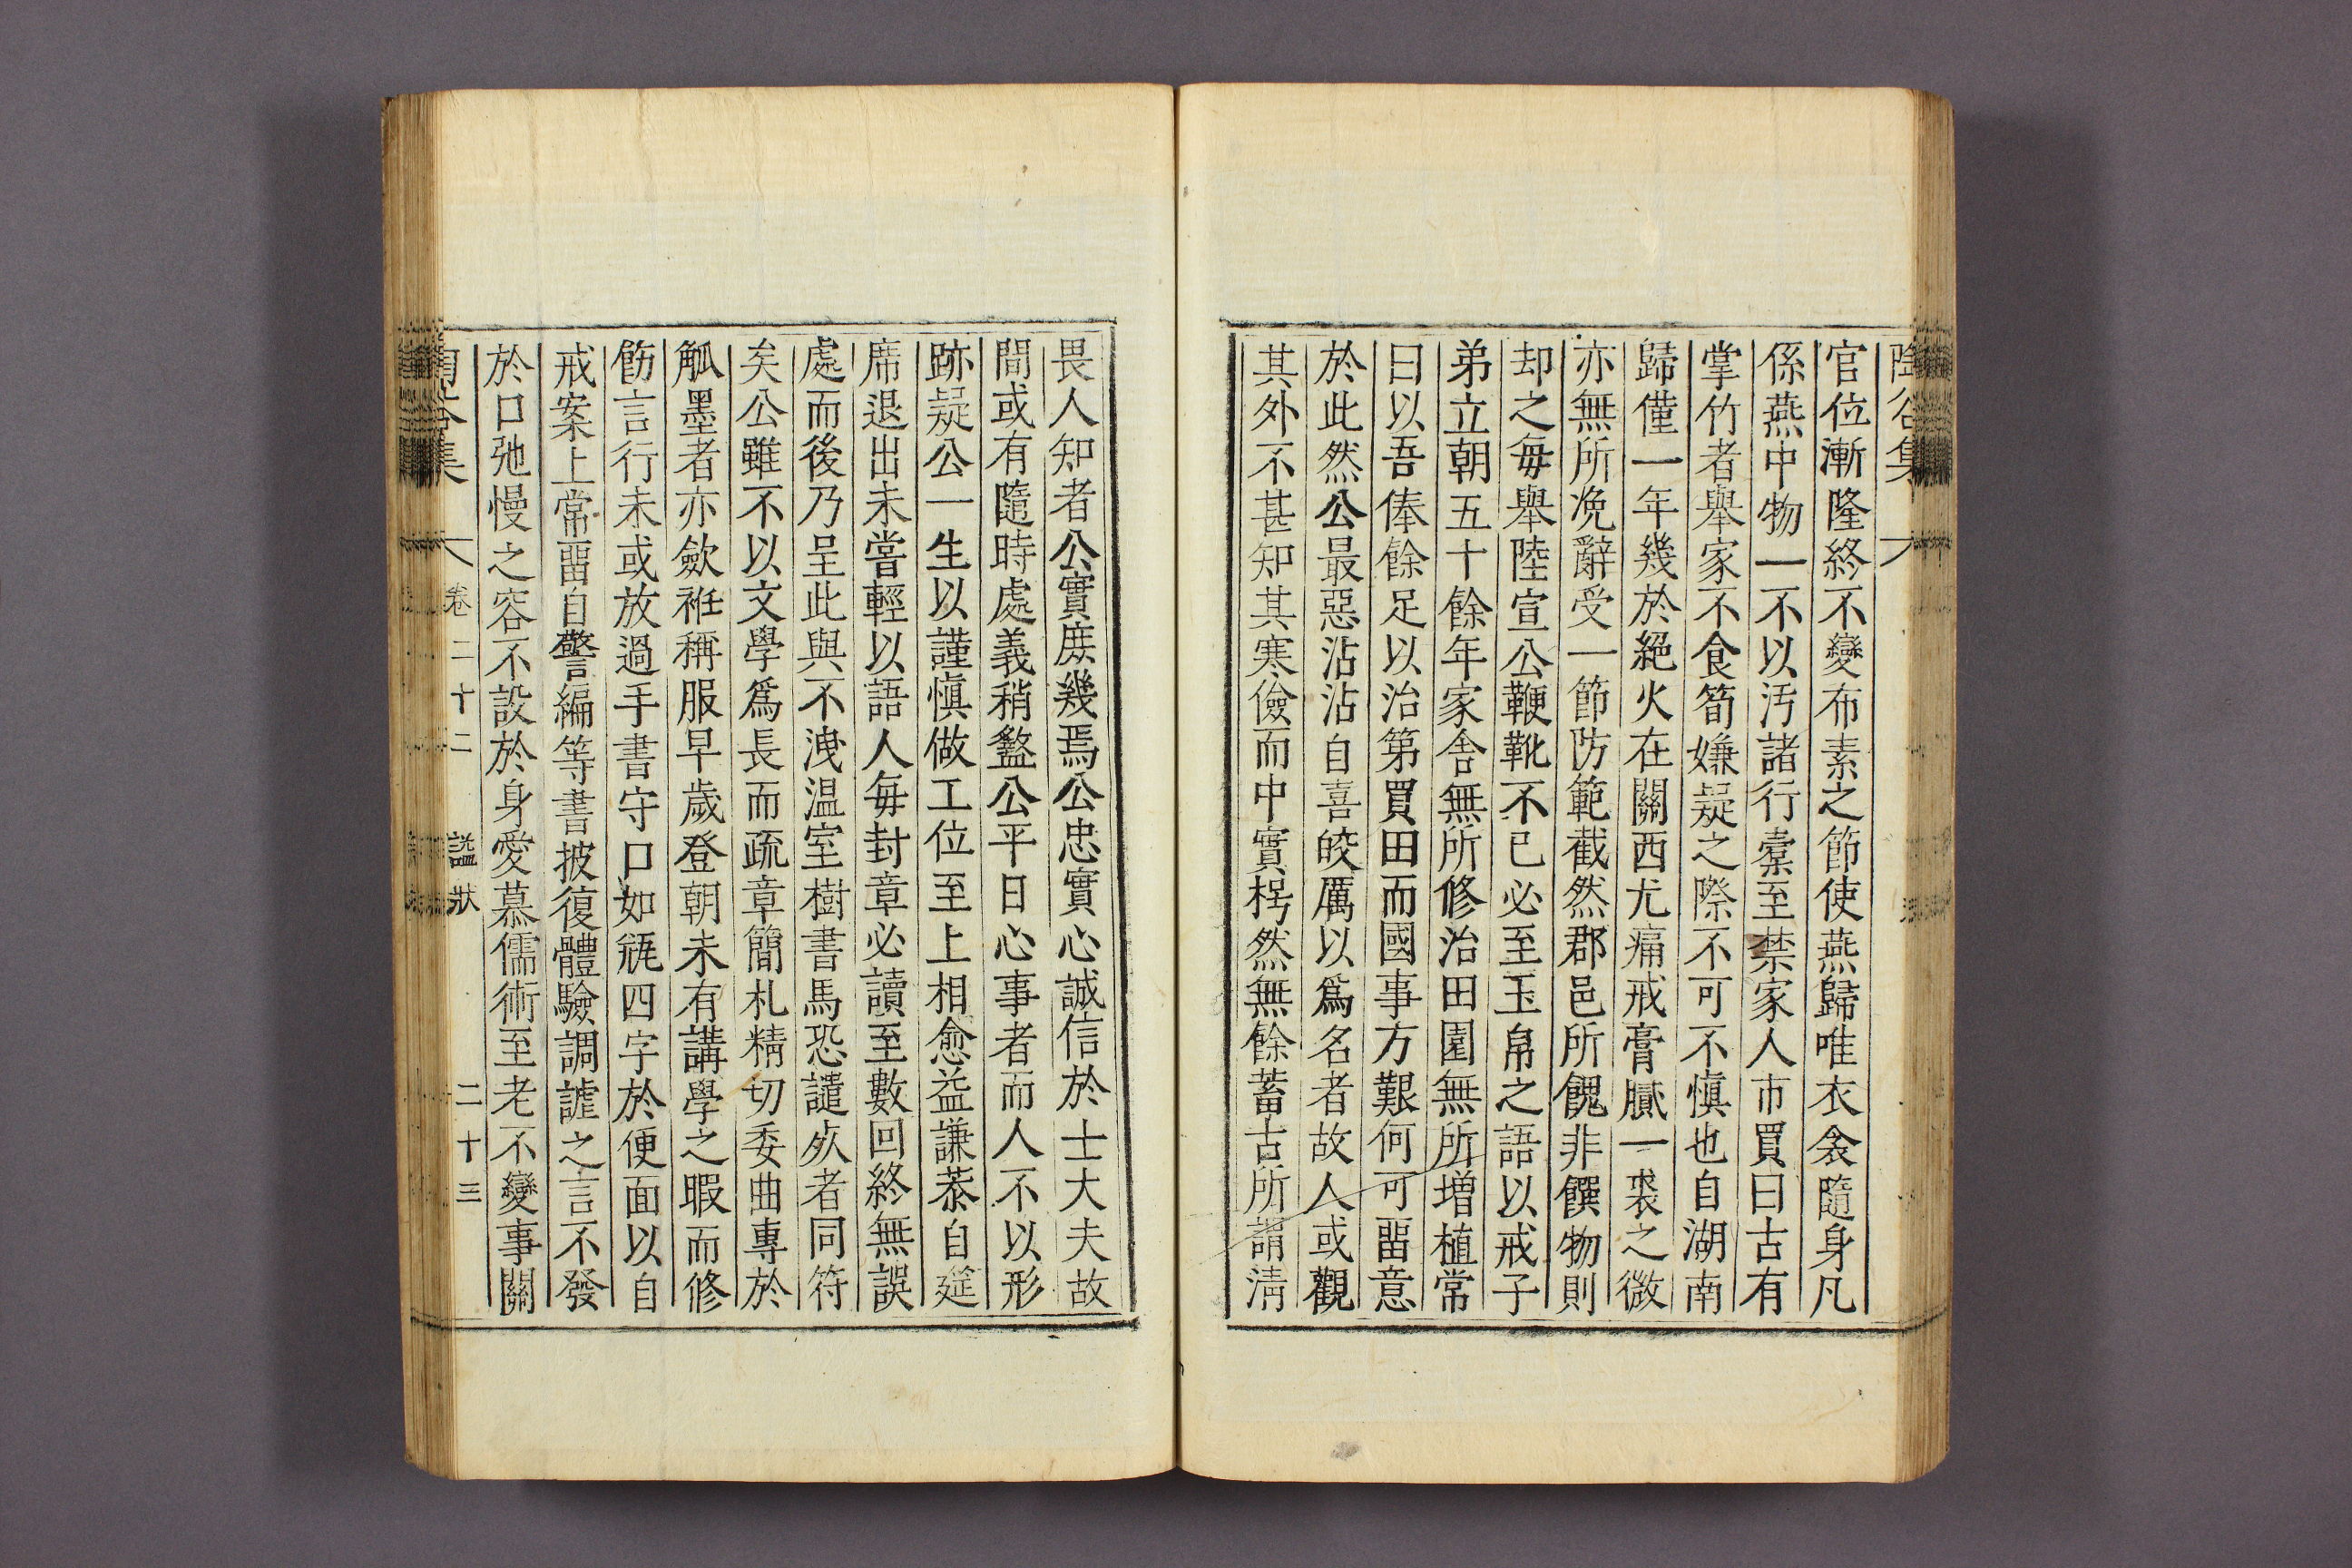 陶谷集
官位漸隆終不變布素之節使燕歸唯衣衾隨身凡
係燕中物一不以汚諸行橐至禁家人市買曰古有
掌竹者舉家不食筍嫌疑之際不可不愼也自湖南
歸僅一年幾於絕火在關西尤痛戒膏膩一裘之微
亦無所浼辭受一節防範截然郡邑所餽非饌物則
却之每舉陸宣公鞭靴不已必至玉帛之語以戒子
弟立朝五十餘年家舍無所修治田園無所增植常
曰以吾俸餘足以治第買田而國事方艱何可畱意
於此然公最惡沾沾自喜皎厲以爲名者故人或觀
其外不甚知其寒儉而中實枵然無餘蓄古所謂淸
畏人知者公實庶幾焉公忠實心誠信於士大夫故
間或有隨時處義稍盭公平日心事者而人不以形
跡疑公一生以謹愼做工位至上相愈益謙恭自筵
席退出未嘗輕以語人每封章必讀至數回終無誤
處而後乃呈此與不洩溫室樹書馬恐譴死者同符
矣公雖不以文學爲長而疏章簡札精切委曲專於
觚墨者亦歛袵稱服早歲登朝未有講學之暇而修
飭言行未或放過手書守口如甁四字於便面以自
戒案上常畱自警編等書披復體驗調謔之言不發
於口弛慢之容不設於身愛慕儒術至老不變事關
陶谷集
卷二十二
謚狀
二十三